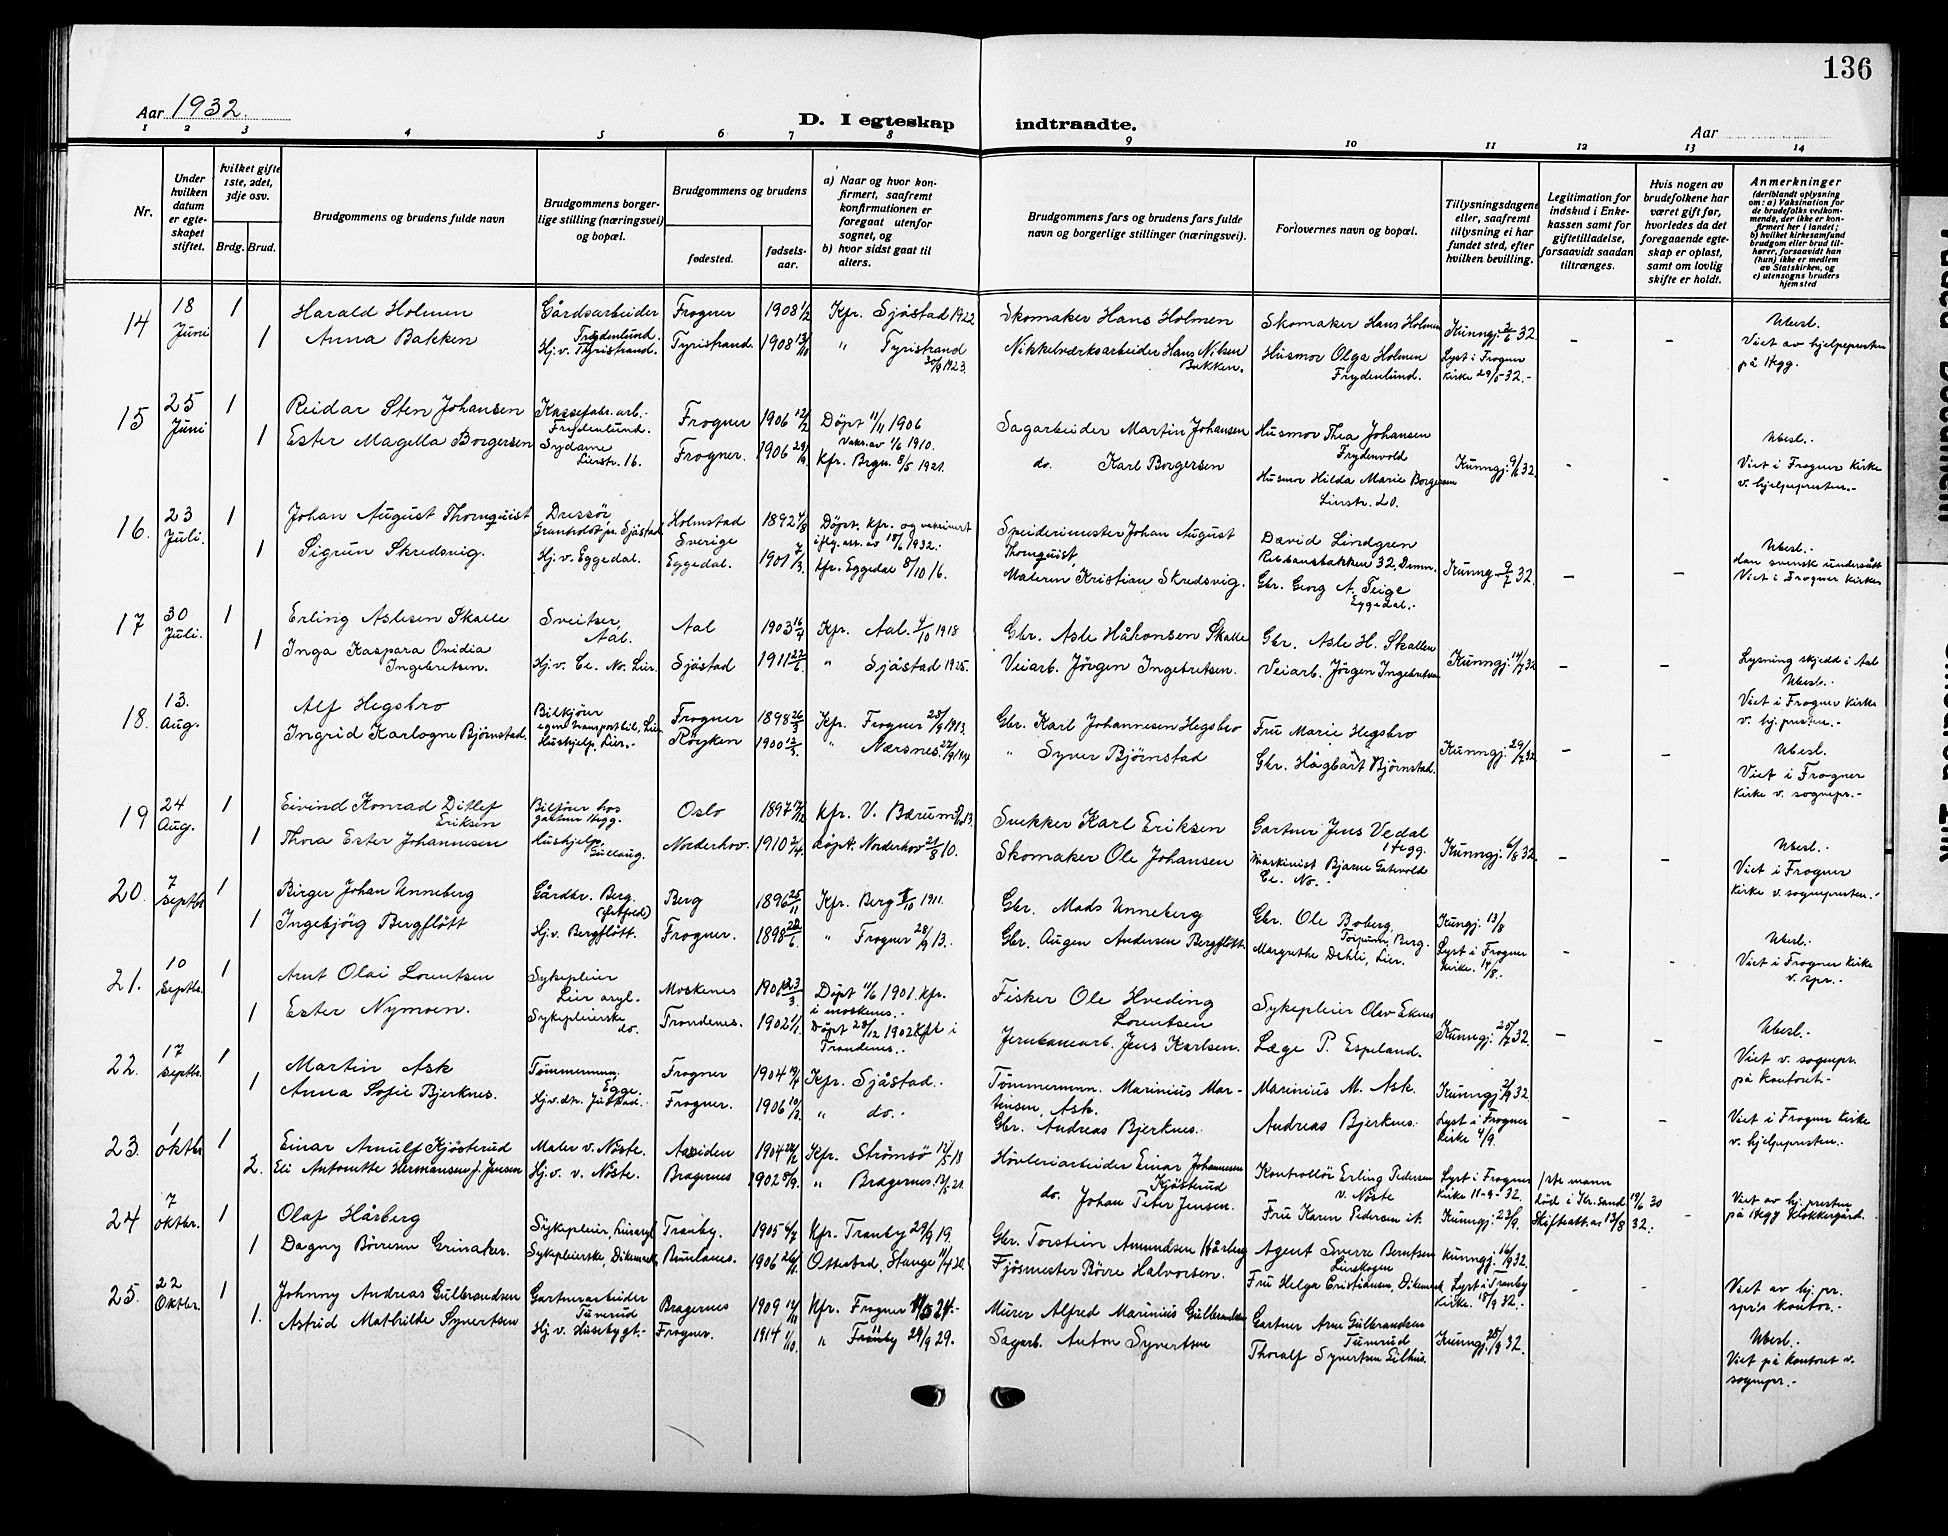 136
Aar 1932.
D. I egteskap indtraadte.
Aar
1 2 3 4 5 6 7 8 9 10 11 12 13 14
Nr.
Under hvilken datum er egteskapet stiftet.
hvilket gifte 1ste, 2det, 3dje osv.
Brdg. Brud.
Brudgommens og brudens fulde navn
Brudgommens borgerlige stilling (næringsvei) og bopæl.
Brudgommens og brudens
fødested.
fødselsaar.
a) Naar og hvor konfirmert, saafremt konfirmationen er foregaat utenfor sognet, og
b) hvor sidst gaat til alters.
Brudgommens fars og brudens fars fulde navn og borgerlige stillinger (næringsvei).
Forlovernes navn og bopæl.
Tillysningsdagene eller, saafremt tillysning ei har fundet sted, efter hvilken bevilling.
Legitimation for indskud i Enkekassen samt for giftetilladelse, forsaavidt saadan tiltrænges.
Hvis nogen av brudefolkene har været gift før, hvorledes da det foregaaende egteskap er opløst, samt om lovlig skifte er holdt.
Anmerkninger
(deriblandt oplysning om: a) Vaksination for de brudefolks vedkommende, der ikke er konfirmert her i landet; b) hvilket kirkesamfund brudgom eller brud tilhører, forsaavidt han (hun) ikke er medlem av Statskirken, og c) utensogns bruders hjemsted
14 18 Juni 1 Harald Holmen Gårdsarbeider Frydenlund. Frogner 1908 1/2 Kfr. Sjåstad 1922 Skomaker Hans Holmen Skomaker Hans Holmen Kunngj. 2/6 32. - - Ubesl.
1 Anna Bakken Hj. v. Tyristrand. Tyristrand. 1908 13/10 " Tyristrand 30/9 1923. Nikkelverksarbeider Hans Nilsen Bakken. Husmor Olga Holmen Frydenlund. Lyst i Frogner kirke 29/5 - 32. - Viet av hjelpepresten på Hegg.
15 25 Juni 1 Reidar Sten Johansen Kassefabr. arb. - Frydenlund. Frogner 1906 12/2 Døpt 11/11 1906 Vaks. av 1/6 1910. Sagarbeider Martin Johansen Husmor Thea Johansen Frydenvold Ubesl. -
1 Ester Magella Borgersen Sydame Lierstr. 16. Frogner. 1906 29/9 Kfr. Brgn. 8/5 1921. do. Karl Borgersen Husmor Hilda Marie Borgersen Lierstr. 20. Kunngj. 9/6 32. - - Viet i Frogner kirke v. hjelpepresten. -
16. 23 Juli. 1 Johan August Thornquist Dressør Holmstad Sverige 1892 4/8 Døpt, kfr. og vaksinert iflg. att. av 18/6 1932. Speiderimester Johan August Thornquist, David Lindgren Rebbansbakken 32, Dramm. Ubesl. - Han svensk undersått
1 Sigrun Skredsvig. Hj. v. Eggedal. Eggedal. 1901 7/3 kfr. Eggedal 8/10 16. Maleren Kristian Skredsvig. Gbr. Georg A. Teige Eggedal. - Kunng. 9/7 32. - - Viet i Frogner kirke
17 30 Juli. 1 Erling Aslesen Skalle Sveitser, Aal. Aal 1903 16/4 Kfr. Aal. 4/10 1918 Gbr. Asle Håkonsen Skalle Gbr. Asle H. Skallen
1 Inga Kaspara Ovidia Ingebretsen. Hj. v. Ce. No. Lier. Sjåstad 1911 22/6. " Sjåstad 1925. Veiarb. Jörgen Ingebretsen. Veiarb. Jörgen Ingebretsen Kunngj. 14/7 32 - - Lysning skjedd i Aal Ubesl. - Viet i Frogner kirke v. hj. presten. -
18. 13. Aug. 1 Alf Hegsbro Bilkjörer egen transportbil, Lier Frogner 1898 26/3 Kfr. Frogner 28/9 1913. Gbr. Karl Johannesen Hegsbro Fru Marie Hegsbro
Ingrid Karlogne Björnstad. Hushjelp, Lier. - Röyken 1900 12/3. " Nærsnes. 27/9 1914 " Syver Björnstad Gbr. Hågbart Björnstad. Kunngj. 29/7 32 - - Ubesl. Viet i Frogner kirke v. sognepr. -
19 24 Aug. 1 Eivind Konrad Ditlef Eriksen Bilfører hos gartner Hegg. Oslo 1897 17/12 Kfr. V. Bærum Snekker Karl Eriksen Gartner Jens Vedal Hegg.
1 Thora Ester Johannesen Hushjelp, Gullaug. Norderhov. 1910 2/4. döpt. Norderhov 21/8 10. Skomaker Ole Johansen Maskinist Bjarne Ce. No. - Kunngj. 6/8 32. - - Ubesl. - Viet i Frogner kirke v. sognepresten. -
20. 7 septbr 1 Birger Johan Unneberg Gårdbr. Berg. Berg 1896 25/11 Kfr. Berg 8/10 1911. Gbr. Mads Unneberg Gbr. Ole Boberg, Berg. Kungj. 13/8
1 Ingebjörg Bergflött Hj. v. Bergflött. Frogner. 1898 28/6. " Frogner 28/9 13. Gbr. Augen Andersen Bergflött. Margrethe Dehli, Lier. Lyst i Frogner kirke. 14/8. - - Ubesl. - Viet i Frogner kirke v. spr. -
21. 10 septbr. 1 Arnt Olai Lorentsen Sykepleier Lier asyl. Moskenes 1901 23/3. Döpt 11/6 1901. kfr. i moskenes. - Fisker Ole Hveding Lorentsen Sykepleier Olav Eknes
1 Ester Nymoen. Sykepleierske do. Trondenes. 1902 1/1. Döpt 28/12 1902 kft i Trondenes. - Jernbanearb. Jens Karlsen. Læge P. Espeland. Kunngj. 20/7 32. - - Ubesl. - Viet v. sognepr. på kontoret. -
22. 17 septbr. 1 Martin Ask Tömmermann. Egge. Frogner 1904 19/4 Kfr. Sjåstad. - Tömmermann. Marinius Martinsen, Ask. Marinius M. Ask. Kunngj. 2/9 32.
1 Anna Sofie Bjerknes. Hj. v. dr. Frogner. 1906 20/2. " do. - Gbr. Andreas Bjerknes. Andreas Bjerknes. Lyst i Frogner kirke 4/9. - - Viet i Frogner kirke v. hjelpepresten. -
23. 1 oktbr 1 Einar Arnulf Kjösterud Maler v. Nöste. Assiden 1904 24/12 Kfr. Strömsö 12/5 - 18 Hövleriarbeider Einar Johannesen Kjösterud Kontrollör Erling Pedersen v. Nöste Lyst i Frogner kirke 11-9-32. 1ste mann
2. Eli Antonette Hermansen f. Jensen Hj. v. v. Nöste. Bragernes 1902 8/9. " Bragernes. 13/5 - 21. do. Johan Peter Jensen. Fru Karen Pedersen ib. Kunngj. 23/9. död i Kr. sand 19/6 30 Skifteatt. av 13/8 32. - Viet av hj. presten på Hegg Klokkergård.
24 7 oktbr. 1 Olaf Hårberg Sykepleier, Lierasyl Tranby. 1905 6/7 Kfr. Tranby 28/9 19. Gbr. Torstein Amundsen Hårberg Agent Sverre Berntsen Linskogen Kunngj. 16/9 32.
1 Dagny Börresen Grinaker. Sykepleierske, Dikemark Brunlanes. 1906 26/11. Ottestad, Stange 11/4 20. Fjösmester Börre Halvorsen. Fru Helga Cristiansen, Dikemark Lyst i Tranby kirke. 18/9 32. - - - Viet av hj. pr. spr.'s kontor. -
25. 22 Oktbr. 1 Johnny Andreas Gulbrandsen Gartnerarbeider Tuverud Bragernes 1909 17/11 Kfr. Frogner 24. - Murer Alfred Marinius Gulbrandsen Gartner Arne Gulbrandsen Tuverud
1. Astrid Mathilde Syvertsen Hj. v. Husebygt. - Frogner. 1914 1/10. " Tranby 29/9 29. - Sagarb. Anton Syvertsen Thoralf Syvertsen Lilhus. Kunngj. 28/9 32. Ubesl. - Viet på kontoret v. sognepr. -